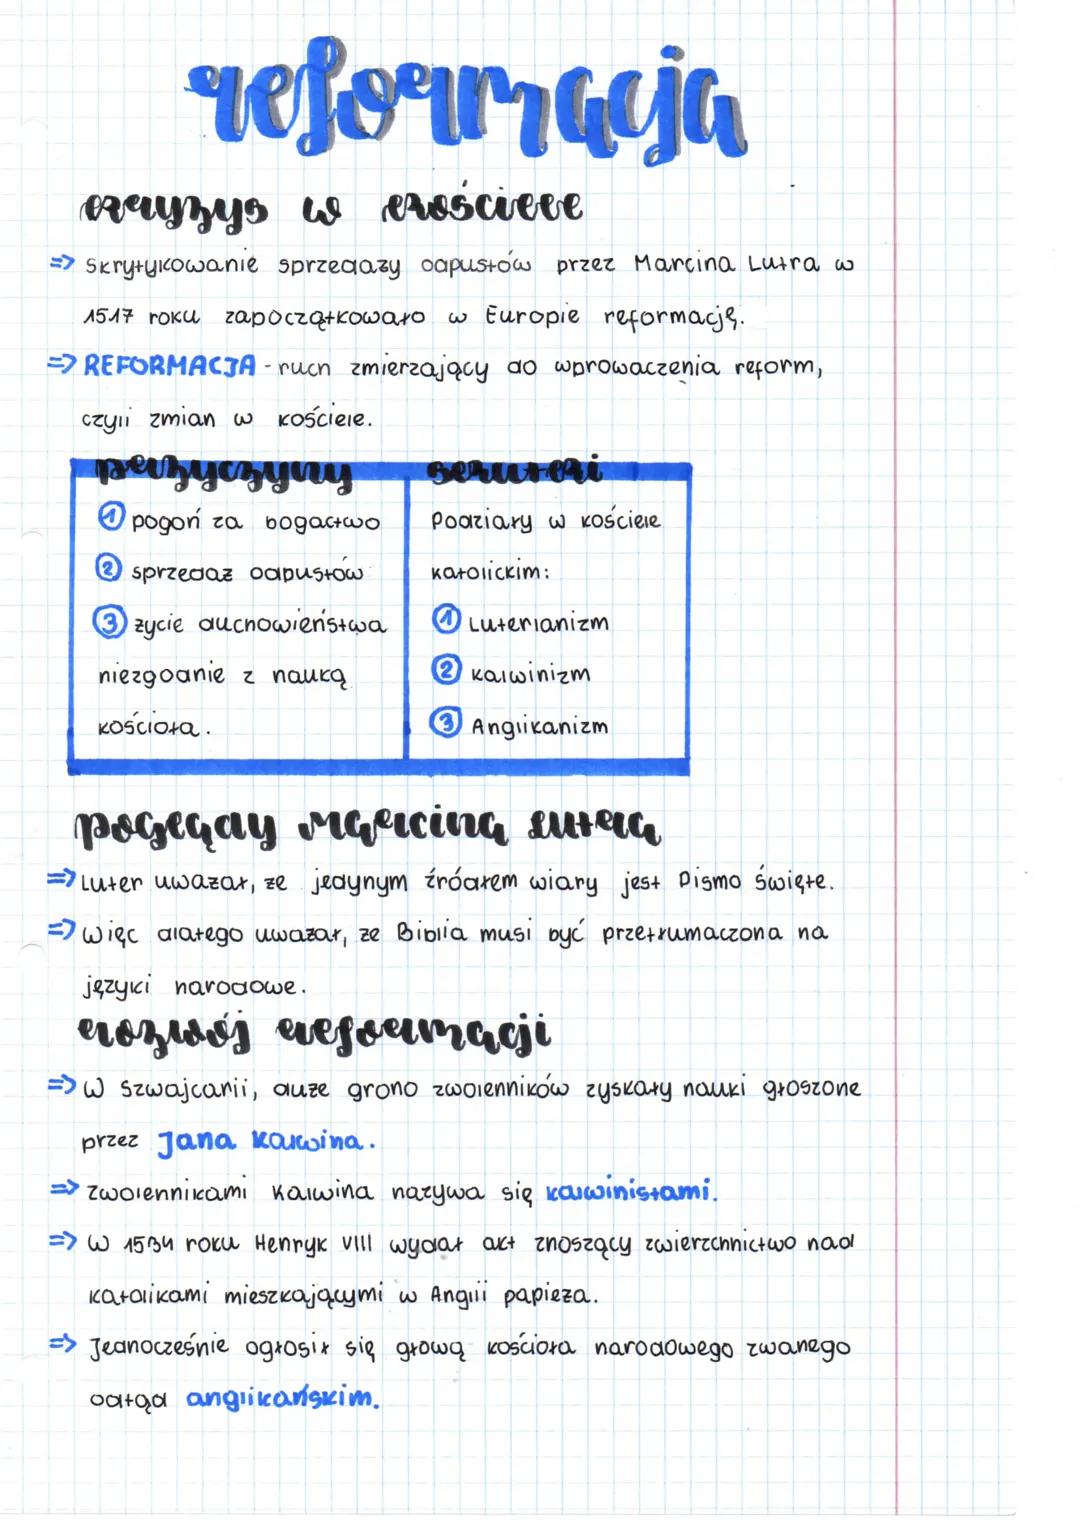 reformacja
kryzys w kościele
=> Skrytykowanie sprzedaży odpustów przez Marcina Lutra w
1517 roku zapoczątkowało w Europie reformację.
=> REFORMACJA - ruch zmierzający do wprowadzenia reform,
czyli zmian w kościele.
przyczyny skutki
① pogoń za bogactwo Podziały w kościele
② sprzedaż odpustów katolickim:
③ życie duchowieństwa ① Luterianizm
niezgodnie z nauką ② kalwinizm
kościoła. ③ Anglikanizm
poglądy Marcina Lutra
=> Luter uważał, że jedynym źródłem wiary jest Pismo Święte.
=> Więc dlatego uważał, że Biblia musi być przetłumaczona na
języki narodowe.
rozwój reformacji
=> W Szwajcarii, duże grono zwolenników zyskały nauki głoszone
przez Jana Kalwina.
=> Zwolennikami Kalwina nazywa się kalwinistami.
=> W 1534 roku Henryk VIII wydał akt znoszący zwierzchnictwo nad
katolikami mieszkającymi w Anglii papieża.
=> Jednocześnie ogłosił się głową kościoła narodowego zwanego
odtąd anglikańskim.